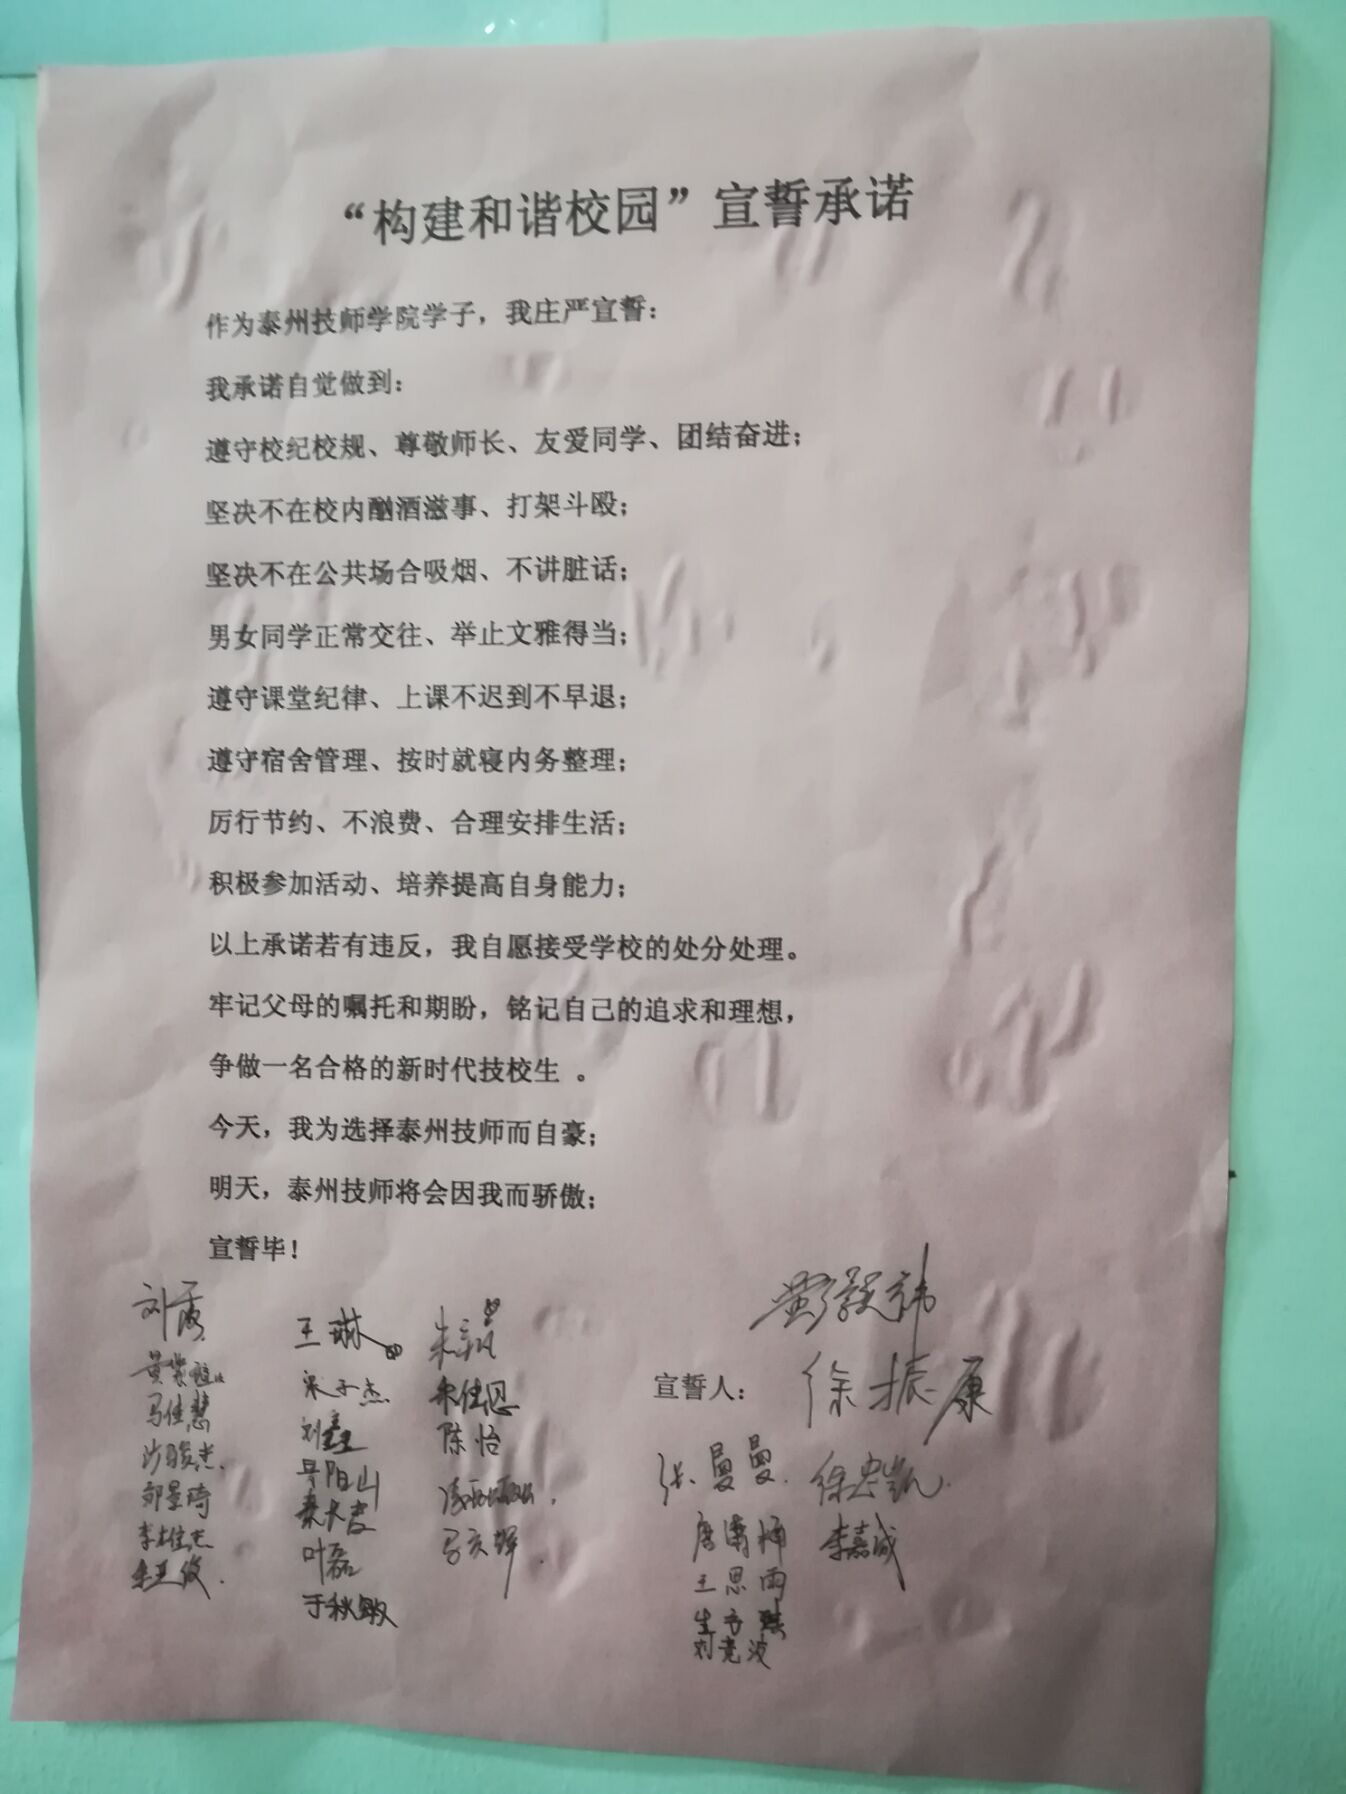 “构建和谐校园”宣誓承诺
作为泰州技师学院学子，我庄严宣誓：
我承诺自觉做到：
遵守校纪校规、尊敬师长、友爱同学、团结奋进；
坚决不在校内酗酒滋事、打架斗殴；
坚决不在公共场合吸烟、不讲脏话；
男女同学正常交往、举止文雅得当；
遵守课堂纪律、上课不迟到不早退；
遵守宿舍管理、按时就寝内务整理；
厉行节约、不浪费、合理安排生活；
积极参加活动、培养提高自身能力；
以上承诺若有违反，我自愿接受学校的处分处理。
牢记父母的嘱托和期盼，铭记自己的追求和理想，
争做一名合格的新时代技校生 。
今天，我为选择泰州技师而自豪；
明天，泰州技师将会因我而骄傲；
宣誓毕！
刘霞
马佳慧
王琳
刘鑫
叶磊
于秋敏
朱佳恩
陈怡
宣誓人：
徐振康
张曼曼
王思雨
李嘉诚